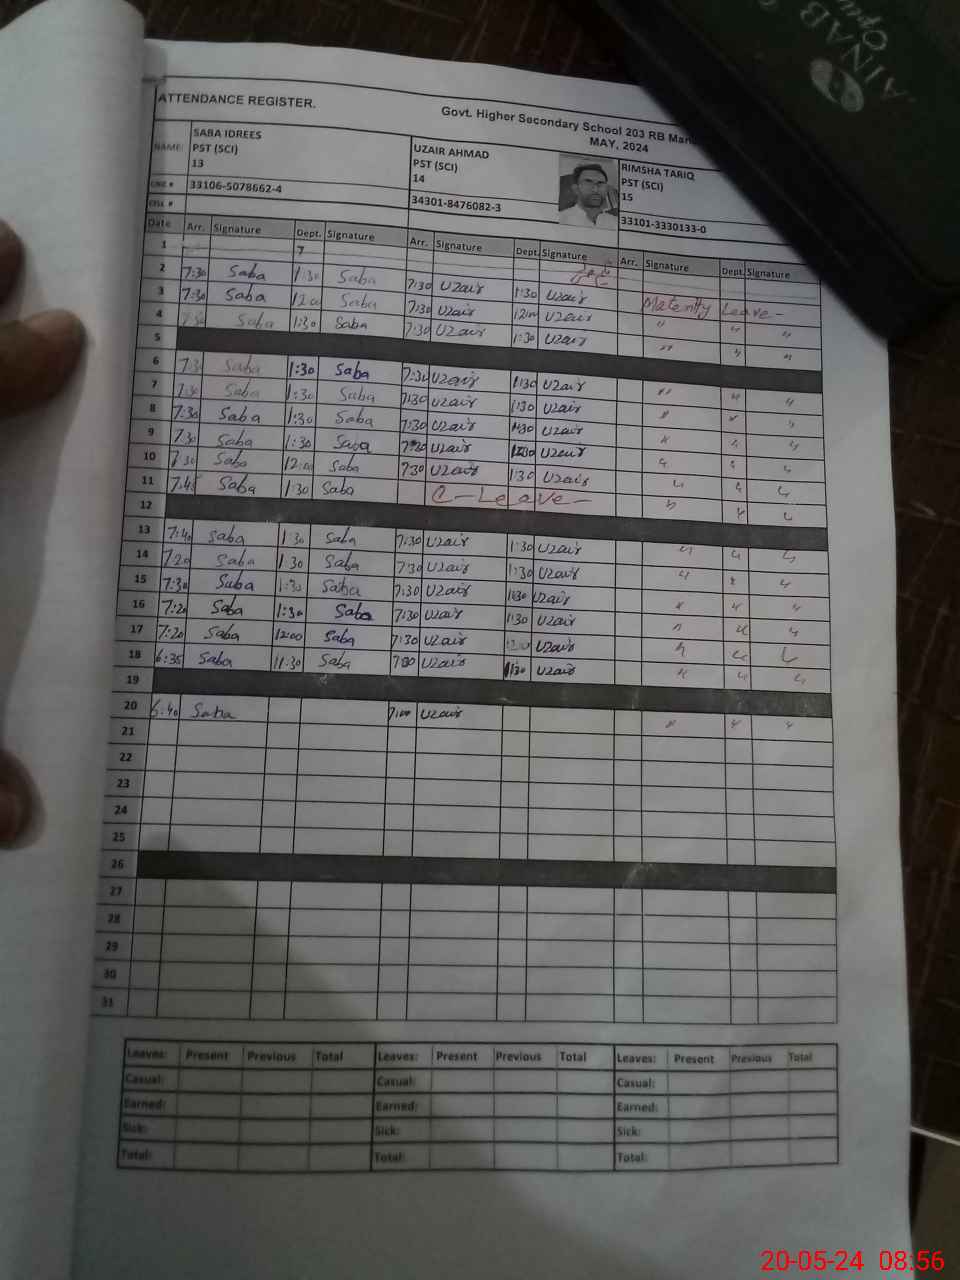 AINAB
ATTENDANCE REGISTER.
Govt. Higher Secondary School 203 RB
MAY, 2024
NAME: SABA IDREES UZAIR AHMAD RIMSHA TARIQ
PST (SCI) PST (SCI) PST (SCI)
13 14 15
CNIC # 33106-5078662-4 34301-8476082-3 33101-3330133-0
CELL #
Date Arr. Signature Dept. Signature Arr. Signature Dept. Signature Arr. Signature Dept. Signature
1
2 7:30 Saba 1:30 Saba 7:30 Uzair 1:30 Uzair Maternity Leave -
3 7:30 Saba 12:00 Saba 7:30 Uzair 12:00 Uzair " " "
4 7:30 Saba 1:30 Saba 7:30 Uzair 1:30 Uzair " " "
5
6 7:30 Saba 1:30 Saba 7:30 Uzair 1:30 Uzair " " "
7 7:30 Saba 1:30 Saba 7:30 Uzair 1:30 Uzair " " "
8 7:30 Saba 1:30 Saba 7:30 Uzair 1:30 Uzair " " "
9 7:30 Saba 1:30 Saba 7:30 Uzair Uzair " " "
10 7:30 Saba 12:00 Saba 7:30 Uzair 1:30 Uzair " " "
11 7:45 Saba 1:30 Saba C-Leave- " " "
12
13 7:40 Saba 1:30 Saba 7:30 Uzair 1:30 Uzair " " "
14 7:20 Saba 1:30 Saba 7:30 Uzair 1:30 Uzair " " "
15 7:30 Saba 1:30 Saba 7:30 Uzair 1:30 Uzair " " "
16 7:20 Saba 1:30 Saba 7:30 Uzair 1:30 Uzair " " "
17 7:20 Saba 12:00 Saba 7:30 Uzair 12:00 Uzair " " "
18 6:35 Saba 11:30 Saba Uzair 11:30 Uzair " " "
19
20 6:40 Saba 7:00 Uzair " " "
21
22
23
24
25
26
27
28
29
30
31
Leaves: Present Previous Total Leaves: Present Previous Total Leaves: Present Previous Total
Casual: Casual: Casual:
Earned: Earned: Earned:
Sick: Sick: Sick:
Total: Total: Total:
20-05-24 08:56